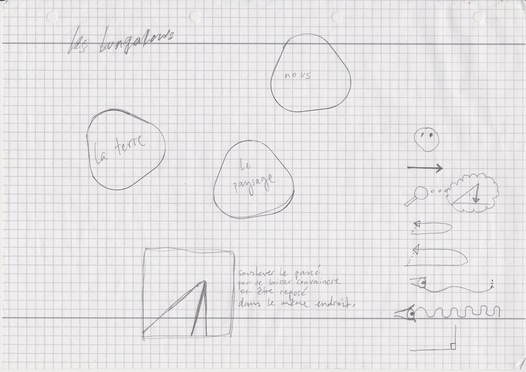 les bungalows
nous
la terre
le
paysage
soulever le passé
pour se laisser convaincre
et être reposé
dans le même endroit.